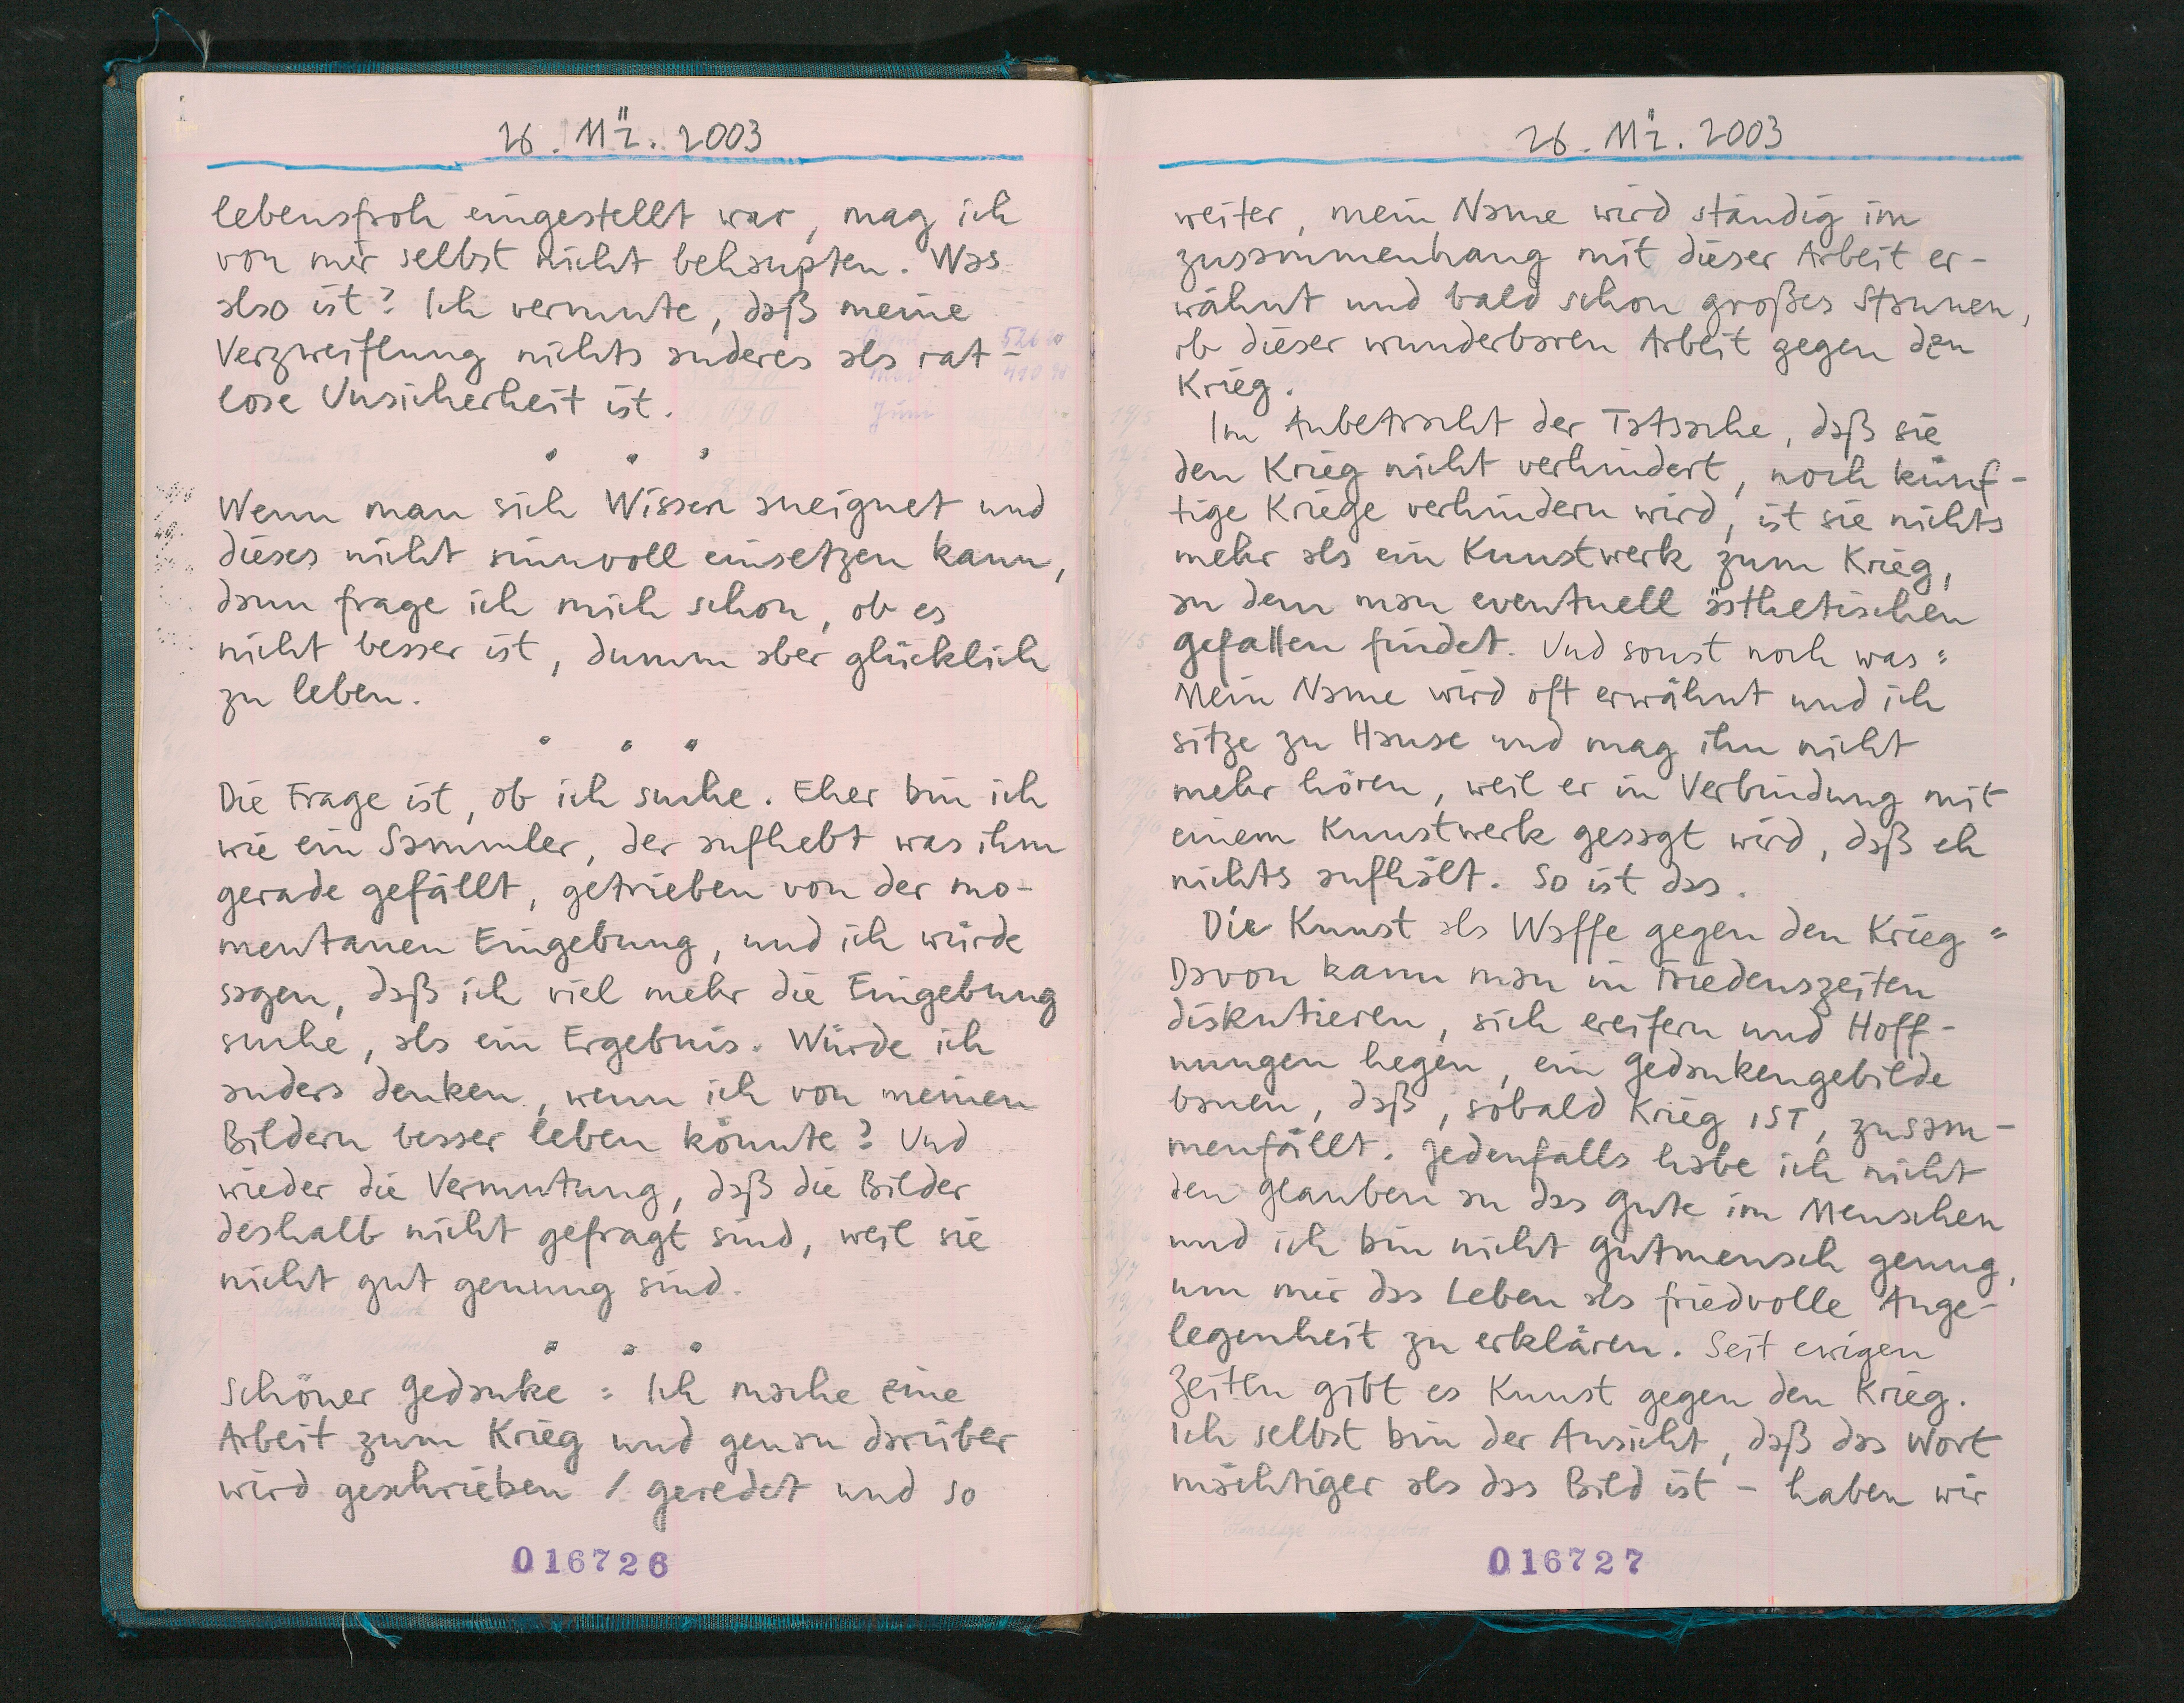 26. Mä. 2003
lebensfroh eingestellt war, mag ich
von mir selbst nicht behaupten. Was
also ist? Ich vermute, daß meine
Verzweiflung nichts anderes als rat-
lose Unsicherheit ist.
Wenn man sich Wissen aneignet und
dieses nicht sinnvoll einsetzen kann,
dann frage ich mich schon, ob es
nicht besser ist, dumm aber glücklich
zu leben.
Die Frage ist, ob ich suche. Eher bin ich
wie ein Sammler, der aufhebt was ihm
gerade gefällt, getrieben von der mo-
mentanen Eingebung, und ich würde
sagen, daß ich viel mehr die Eingebung
suche, als ein Ergebnis. Würde ich
anders denken, wenn ich von meinen
Bildern besser leben könnte? Und
wieder die Vermutung, daß die Bilder
deshalb nicht gefragt sind, weil sie
nicht gut genung sind.
Schöner Gedanke: Ich mache eine
Arbeit zum Krieg und genau darüber
wird geschrieben / geredet und so
016726
26. Mä. 2003
weiter, mein Name wird ständig im
zusammenhang mit dieser Arbeit er-
wähnt und bald schon großes Staunen,
ob dieser wunderbaren Arbeit gegen den
Krieg.
Im Anbetracht der Tatsache, daß sie
den Krieg nicht verhindert, noch künf-
tige Kriege verhindern wird, ist sie nichts
mehr als ein Kunstwerk zum Krieg,
an dem man eventuell ästhetischen
gefallen findet. Und sonst noch was:
Mein Name wird oft erwähnt und ich
sitze zu Hause und mag ihn nicht
mehr hören, weil er in Verbindung mit
einem Kunstwerk gesagt wird, daß eh
nichts aufhält. So ist das.
Die Kunst als Waffe gegen den Krieg =
Davon kann man in Friedenszeiten
diskutieren, sich ereifern und Hoff-
nungen hegen, ein Gedankengebilde
bauen, daß, sobald Krieg IST, zusam-
menfällt. Jedenfalls habe ich nicht
den Glauben an das Gute im Menschen
und ich bin nicht Gutmensch genug,
um mir das Leben als friedvolle Ange-
legenheit zu erklären. Seit ewigen
Zeiten gibt es Kunst gegen den Krieg.
Ich selbst bin der Ansicht, daß das Wort
mächtiger als das Bild ist - haben wir
016727